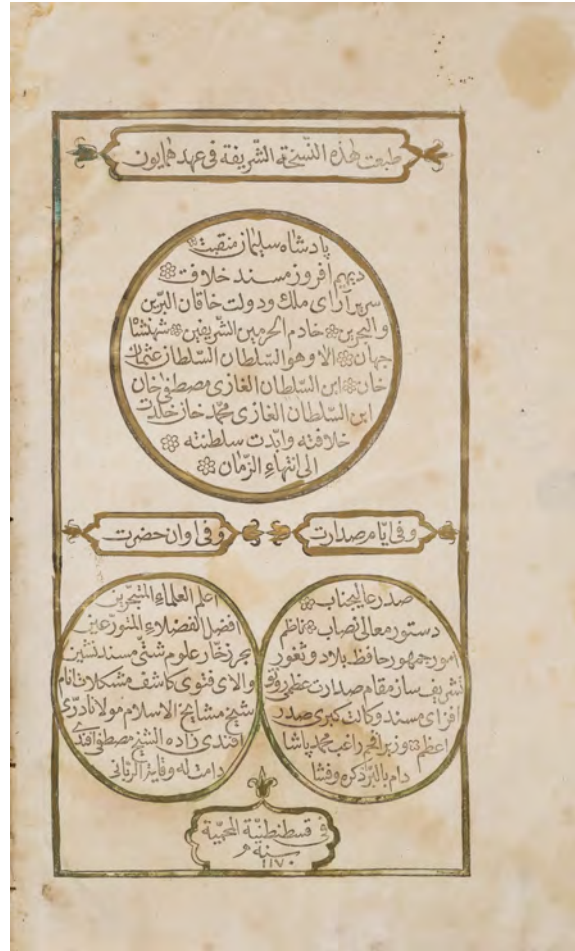 طبعت هٰذه النّسخة الشّريفة فى عهد همايون
پادشاه سليمان منقبت
ديهيم افروز مسند خلافت
سرير آراى ملك ودولت خاقان البرّين
والبحرين خادم الحرمين الشّريفين شهنشاه
جهان الا وهو السّلطان السّلطان عثمان
خان ابن السّلطان الغازى مصطفى خان
ابن السّلطان الغازى محمّد خان خلدت
خلافته وابّدت سلطنته
الى انتهاءِ الزّمان
وفى ايّام صدارت
صدر عاليجناب
دستور معالى نصاب ناظم
امور جمهور حافظ بلاد و ثغور
تشريف ساز مقام صدارت عظمى رونق
افزاى مسند وكالت كبرى صدر
اعظم وزير افخم راغب محمّد پاشا
دام بالبرّ ذكره وفشا
وفى اوان حضرت
اعلم العلماءِ المتبحّرين
افضل الفضلاءِ المتورّعين
بحر زخّار علوم شتّى مسند نشين
والاى فتوى كاشف مشكلات انام
شيخ مشايخ الاسلام مولانا درّى
افندى زاده الشيخ مصطفى افندى
دامت له وقاية الربّانى
فى قسطنطنيّة المحميّة
سنة ١١٧٠